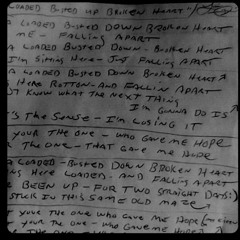 LOADED BUSTED UP BROKEN HEART"
LOADED BUSTED DOWN BROKEN HEART
ME - FALLING APART
A LOADED BUSTED DOWN - BROKEN HEART
I'm SITTING HERE - JUST FALLING APART
A LOADED BUSTED DOWN BROKEN HEART
HERE ROTTON - AND FALLIN APART
T KNOW WHAT THE NEXT THING
I'M GONNA DO IS
'S THE SENSE - I'M LOSING IT
YOUR THE ONE - WHO GAVE ME HOPE
THE ONE - THAT GAVE ME HOPE
A LOADED - BUSTED DOWN BROKEN HEART
NG HERE LOADED - AND FALLING APART
BEEN UP - FOR TWO STRAIGHT DAYS!
STUCK IN THIS SAME OLD MAZE
YOUR THE ONE - WHO GAVE ME HOPE
YOUR THE ONE - WHO GAVE ME HOPE